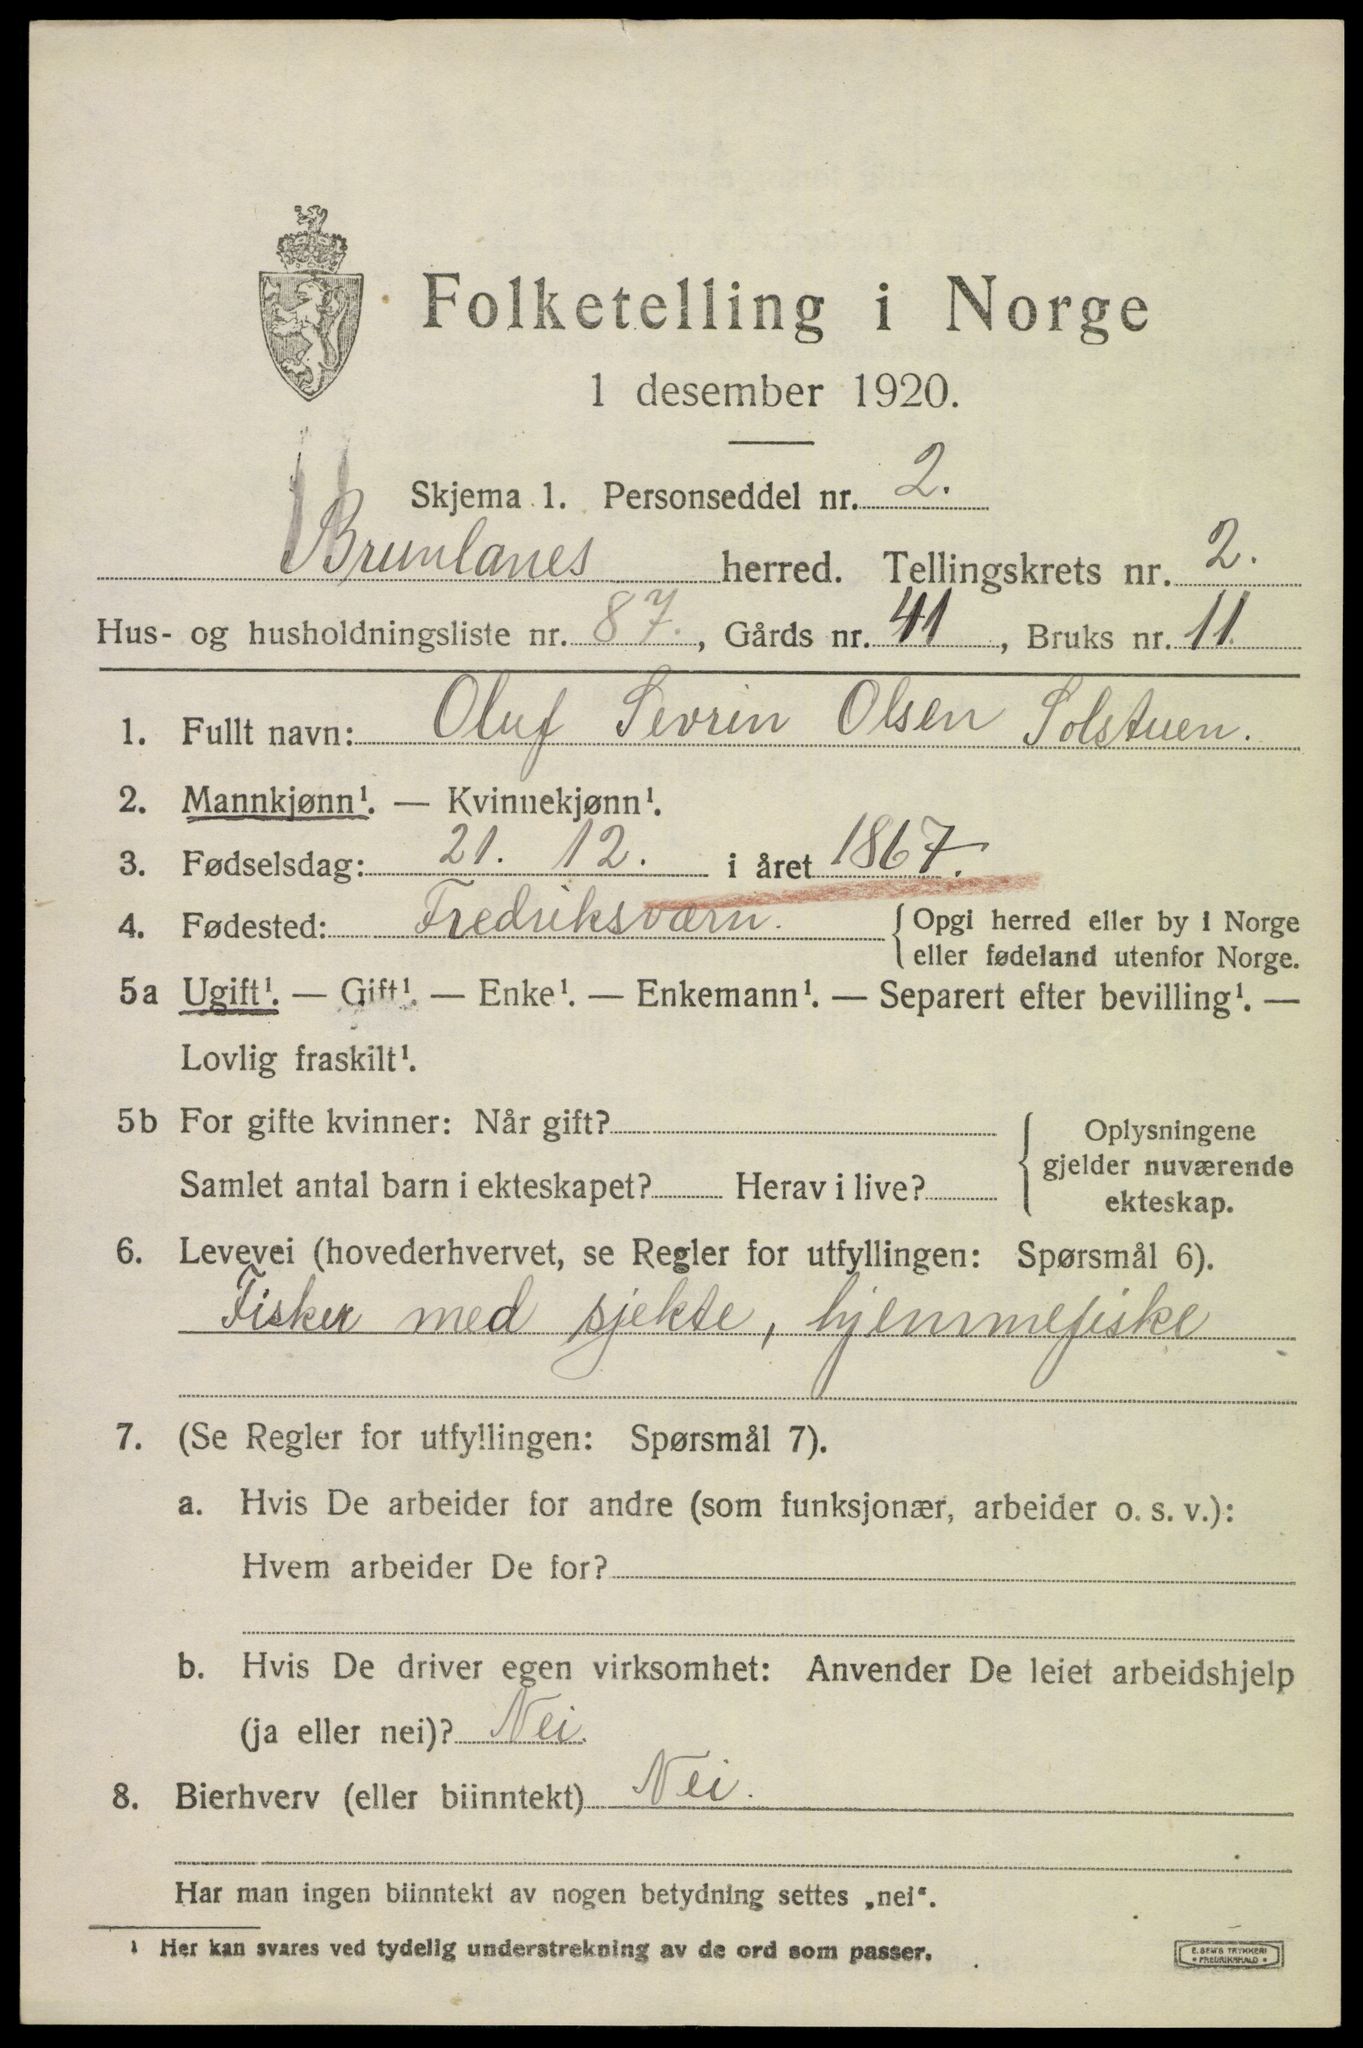 Folketelling i Norge
1 desember 1920.
Skjema 1. Personseddel nr. 2.
Brunlanes herred. Tellingskrets nr. 2.
Hus- og husholdningsliste nr. 87., Gårds nr. 41, Bruks nr. 11.
1. Fullt navn: Oluf Sevrin Olsen Solstuen.
2. Mannkjønn¹. — Kvinnekjønn¹.
3. Fødselsdag: 21. 12. i året 1867.
4. Fødested: Fredriksværn. { Opgi herred eller by i Norge
eller fødeland utenfor Norge.
5a Ugift¹. — Gift¹. — Enke¹. — Enkemann¹. — Separert efter bevilling¹. —
Lovlig fraskilt¹.
5b For gifte kvinner: Når gift?
Samlet antal barn i ekteskapet? Herav i live?
{ Oplysningene
gjelder nuværende
ekteskap.
6. Levevei (hovederhvervet, se Regler for utfyllingen: Spørsmål 6).
Fisker med sjekte, hjemmefiske
7. (Se Regler for utfyllingen: Spørsmål 7).
a. Hvis De arbeider for andre (som funksjonær, arbeider o. s. v.):
Hvem arbeider De for?
b. Hvis De driver egen virksomhet: Anvender De leiet arbeidshjelp
(ja eller nei)? Nei.
8. Bierhverv (eller biinntekt) Nei.
Har man ingen biinntekt av nogen betydning settes „nei“.
¹ Her kan svares ved tydelig understrekning av de ord som passer.
E. SEM'S TRYKKERI
• FREDRIKSHALD •